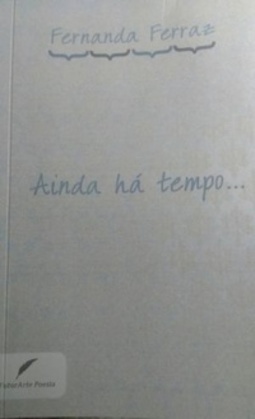 Fernanda Ferraz
Ainda há tempo...
FuturArte Poesia